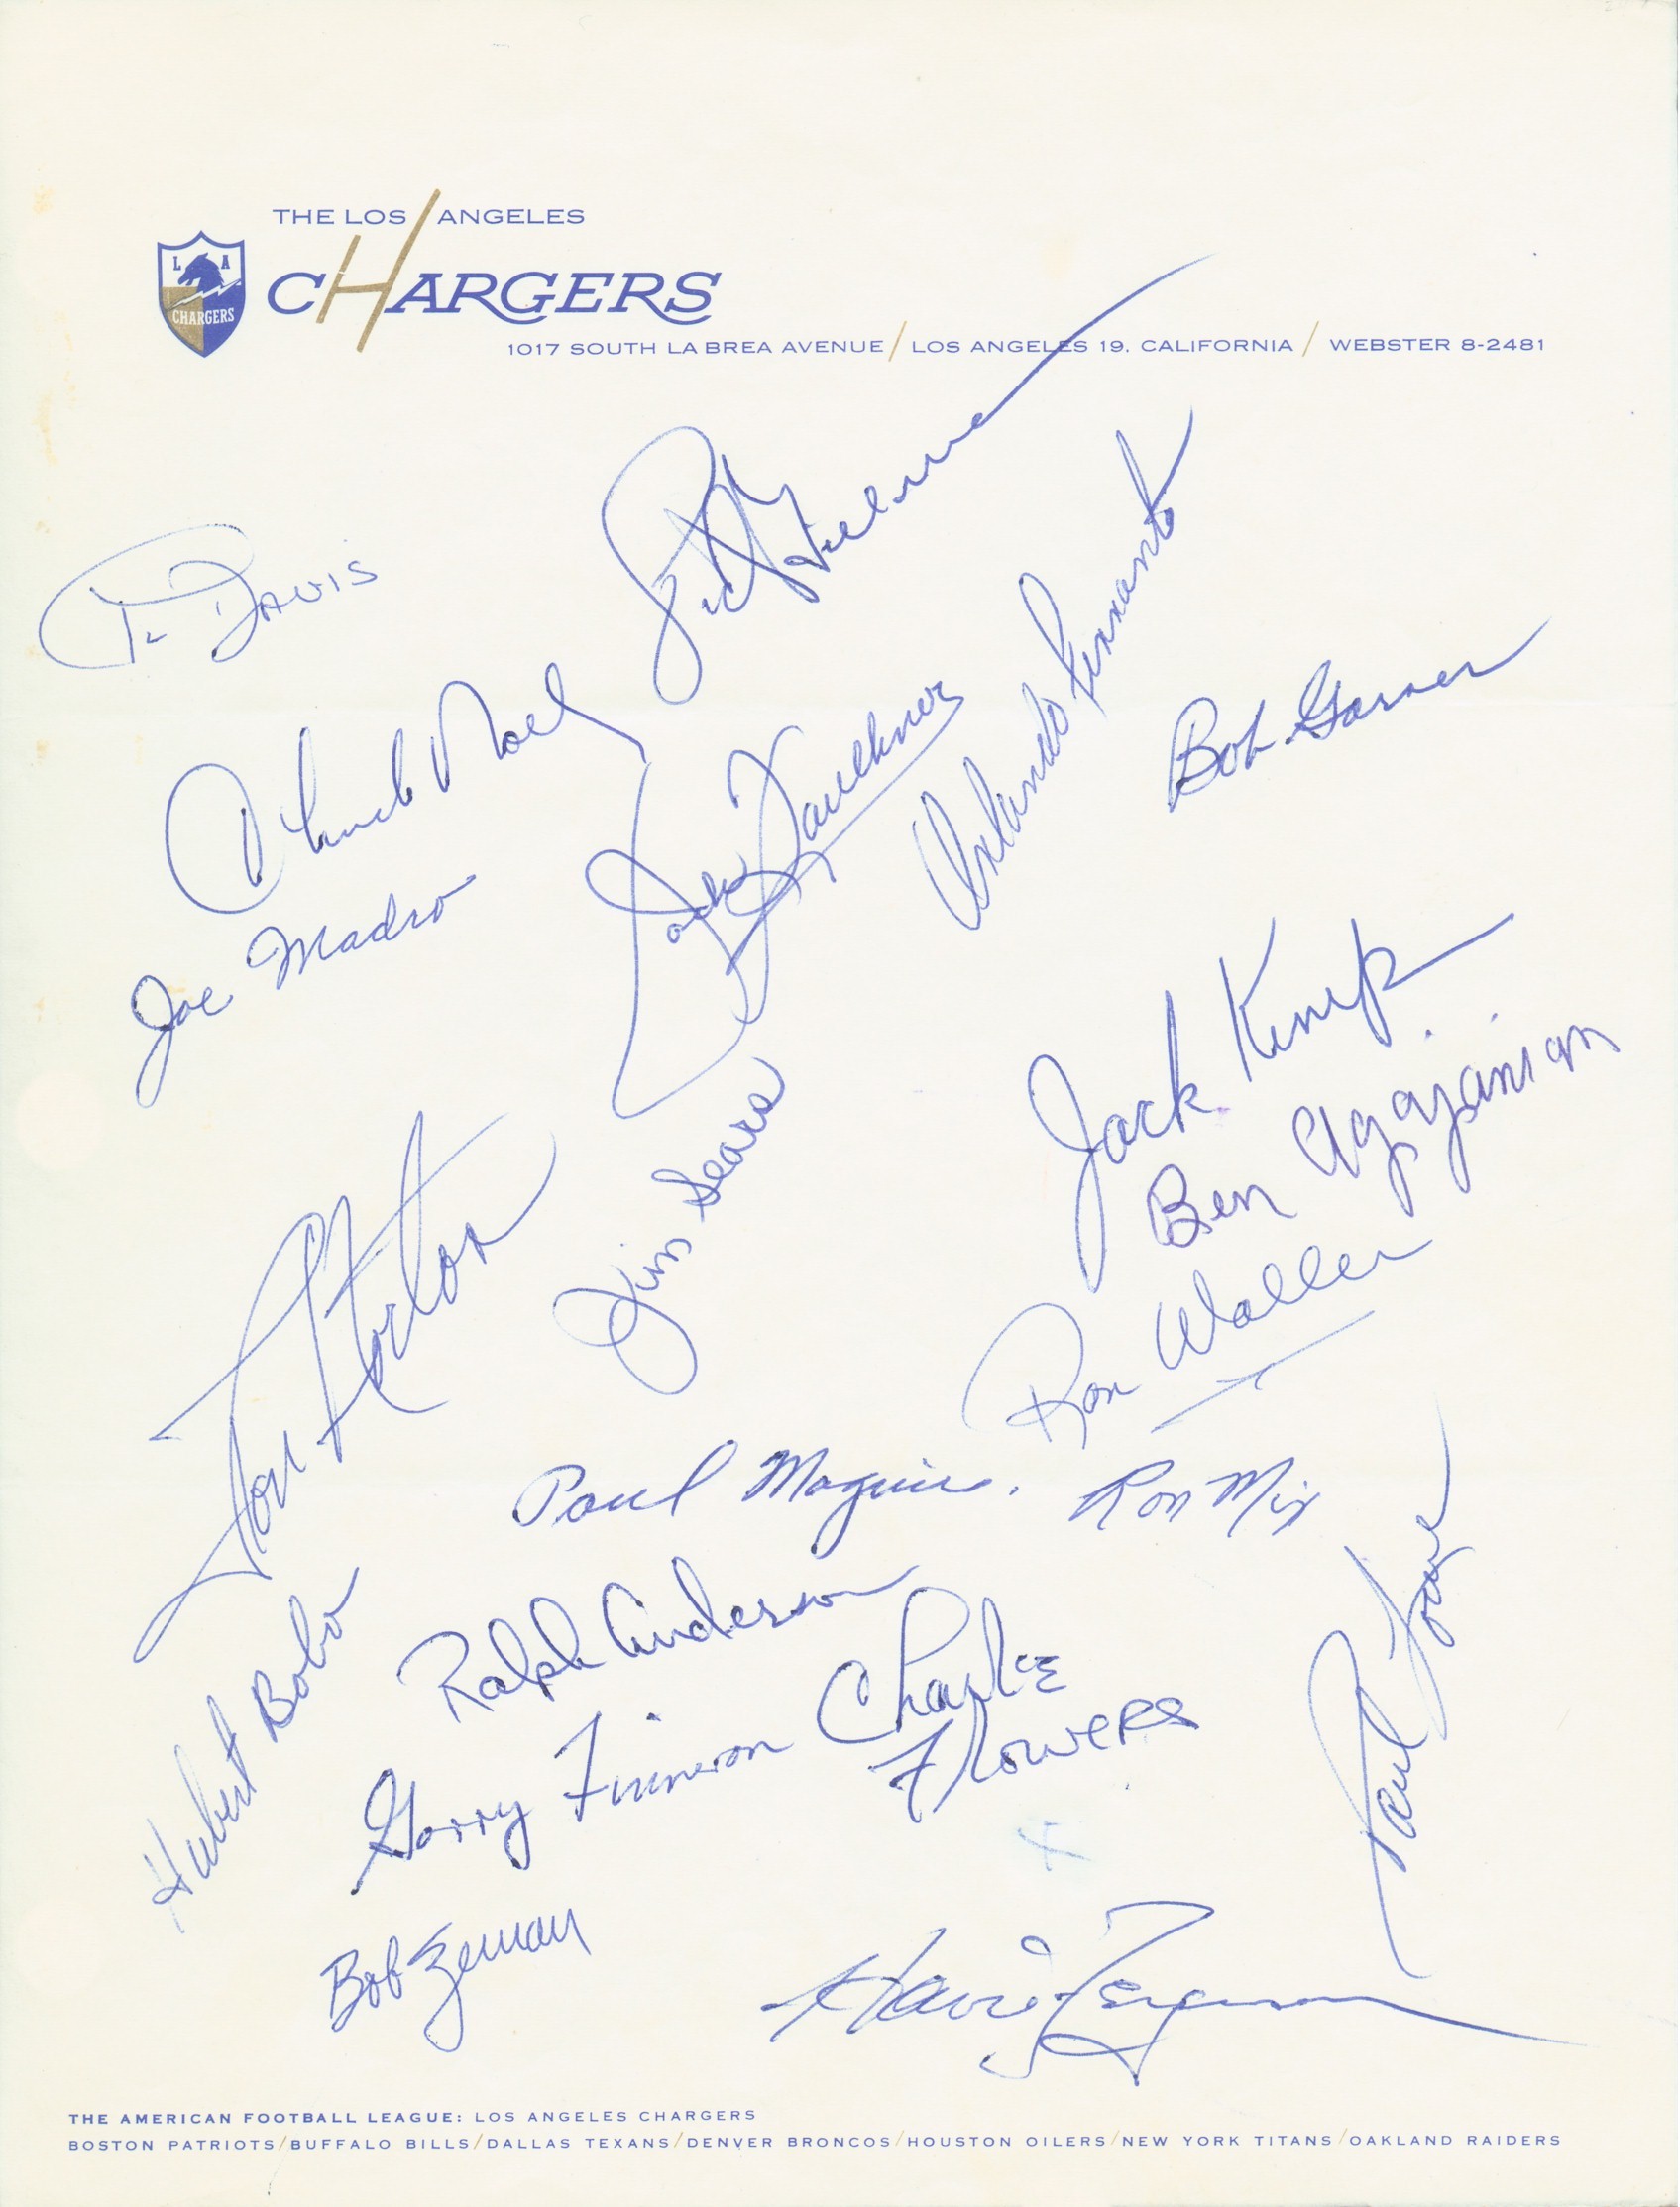 THE LOS ANGELES
CHARGERS
L A
CHARGERS
1017 SOUTH LA BREA AVENUE / LOS ANGELES 19, CALIFORNIA / WEBSTER 8-2481
Davis
Chuck Noll
Joe Madro
Jack Faulkner
Orlando Ferrante
Bob Garner
Jack Kemp
Ben Agajanian
Ron Waller
Jim Sears
Don Norton
Paul Maguire.
Ron Mix
Ralph Anderson
Charlie
Flowers
Paul Lowe
Hubert Bobo
Garry Finneron
Bob Zeman
Howie Ferguson
THE AMERICAN FOOTBALL LEAGUE: LOS ANGELES CHARGERS
BOSTON PATRIOTS/BUFFALO BILLS/DALLAS TEXANS/DENVER BRONCOS/HOUSTON OILERS/NEW YORK TITANS/OAKLAND RAIDERS